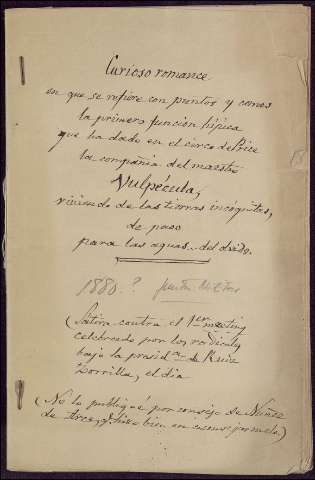 Curioso romance
en que se refiere con puntos y comas
la primera función hípica
que ha dado en el circo de Price
la compañia del maestro
Vulpécula,
viniendo de las tierras incógnitas,
de paso
para las aguas del
1880.?
(Sátira contra el 1er meeting
celebrado por los radicales
bajo la presid.cia de Ruiz
Zorrilla, el dia
(No la publiqué por consejo de Nuñez
de Arce, é hizo bien en